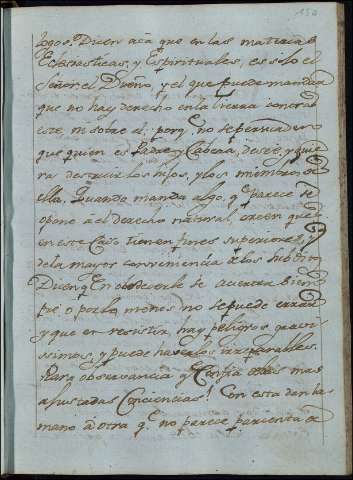 logos. Dicen acà que en las materias
Eclesiasticas, y Espirituales, es solo el
Señor, el Dueño, y el que puede mandar
que no hay derecho en la tierra contra
este, ni sobre el: porq. no se persuade
que quien es Padre y Cabeza, desèe, y quie
ra destruir los hijos, y los miembros de
ella. Quando manda algo, q. parece se
opone à el derecho natural, creen que
en este Caso tienen fines superiores, y
de la mayor conveniencia a los subditos
Dicen q. En obedecerle se acierta siem
pre o por lo menos no se puede errar
y que en resistir, hay peligros gravi
simos, y puede haverlos irreparables.
Rara observancia y Confia de las mas
ajustadas Conciencias! Con esta dan la
mano à otra q. no parece parienta de